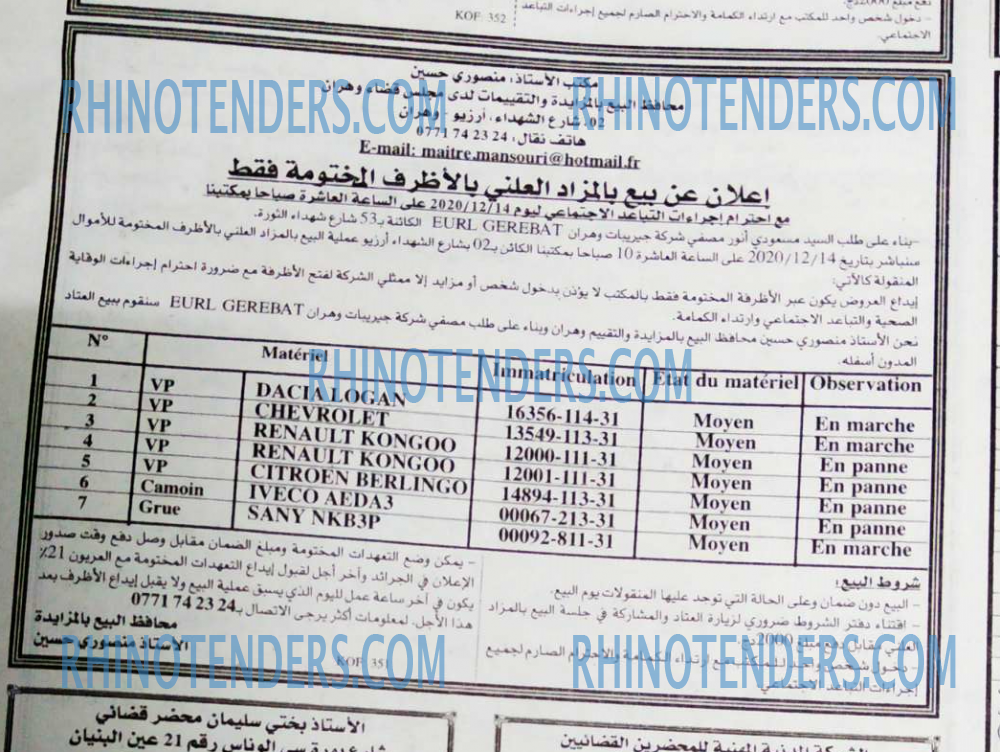 دفع مبلغ 2000دج.
– دخول شخص واحد للمكتب مع ارتداء الكمامة والاحترام الصارم لجميع إجراءات التباعد
الاجتماعي.
KOF. 352
مكتب الأستاذ، منصوري حسين
محافظ البيع بالمزايدة والتقييمات لدى مجلس قضاء وهران
RHINOTENDERS.COM
RHINOTENDERS.COM
02، شارع الشهداء، أرزيو - وهران
هاتف نقال، 0771 74 23 24
E-mail: maitre.mansouri@hotmail.fr
إعلان عن بيع بالمزاد العلني بالأظرف المختومة فقط
مع احترام إجراءات التباعد الاجتماعي ليوم 2020/12/14 على الساعة العاشرة صباحا بمكتبنا
–بناء على طلب السيد مسعودي أنور مصفي شركة جيريبات وهران EURL GEREBAT الكائنة بـ53 شارع شهداء الثورة.
سنباشر بتاريخ 2020/12/14 على الساعة العاشرة 10 صباحا بمكتبنا الكائن بـ02 بشارع الشهداء أرزيو عملية البيع بالمزاد العلني بالأظرف المختومة للأموال
المنقولة كالآتي:
إيداع العروض يكون عبر الأظرفة المختومة فقط بالمكتب لا يؤذن بدخول شخص أو مزايد إلا ممثلي الشركة لفتح الأظرفة مع ضرورة احترام إجراءات الوقاية
الصحية والتباعد الاجتماعي وارتداء الكمامة.
نحن الأستاذ منصوري حسين محافظ البيع بالمزايدة والتقييم وهران وبناء على طلب مصفي شركة جيريبات وهران EURL GEREBAT سنقوم ببيع العتاد
المدون أسفله.
RHINOTENDERS.COM
N° Matériel Immatriculation Etat du matériel Observation
1 VP DACIA LOGAN 16356-114-31 Moyen En marche
2 VP CHEVROLET 13549-113-31 Moyen En marche
3 VP RENAULT KONGOO 12000-111-31 Moyen En panne
4 VP RENAULT KONGOO 12001-111-31 Moyen En panne
5 VP CITROEN BERLINGO 14894-113-31 Moyen En panne
6 Camoin IVECO AEDA3 00067-213-31 Moyen En panne
7 Grue SANY NKB3P 00092-811-31 Moyen En marche
شروط البيع:
– البيع دون ضمان وعلى الحالة التي توجد عليها المنقولات يوم البيع.
– اقتناء دفتر الشروط ضروري لزيارة العتاد والمشاركة في جلسة البيع بالمزاد
العلني مقابل دفع مبلغ 2000دج.
– دخول شخص واحد للمكتب مع ارتداء الكمامة والاحترام الصارم لجميع
إجراءات التباعد الاجتماعي
– يمكن وضع التعهدات المختومة ومبلغ الضمان مقابل وصل دفع وقت صدور
الإعلان في الجرائد وآخر أجل لقبول إيداع التعهدات المختومة مع العربون 21%
يكون في آخر ساعة عمل لليوم الذي يسبق عملية البيع ولا يقبل إيداع الأظرف بعد
هذا الأجل. لمعلومات أكثر يرجى الاتصال بـ0771 74 23 24
محافظ البيع بالمزايدة
الأستاذ منصوري حسين
RHINOTENDERS.COM
RHINOTENDERS.COM
KOF. 351
الأستاذ بختي سليمان محضر قضائي
رقم 21 عين البنيان
المهنية للمحضرين القضائيين